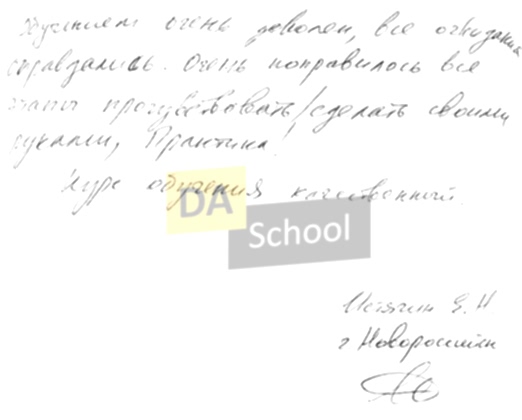 Обучением очень доволен, все ожидания
оправдались. Очень понравилось все
этапы прочувствовать/сделать своими
руками, Практика!
Курс обучения качественный.
DA
School
Е.Н.
г Новороссийск